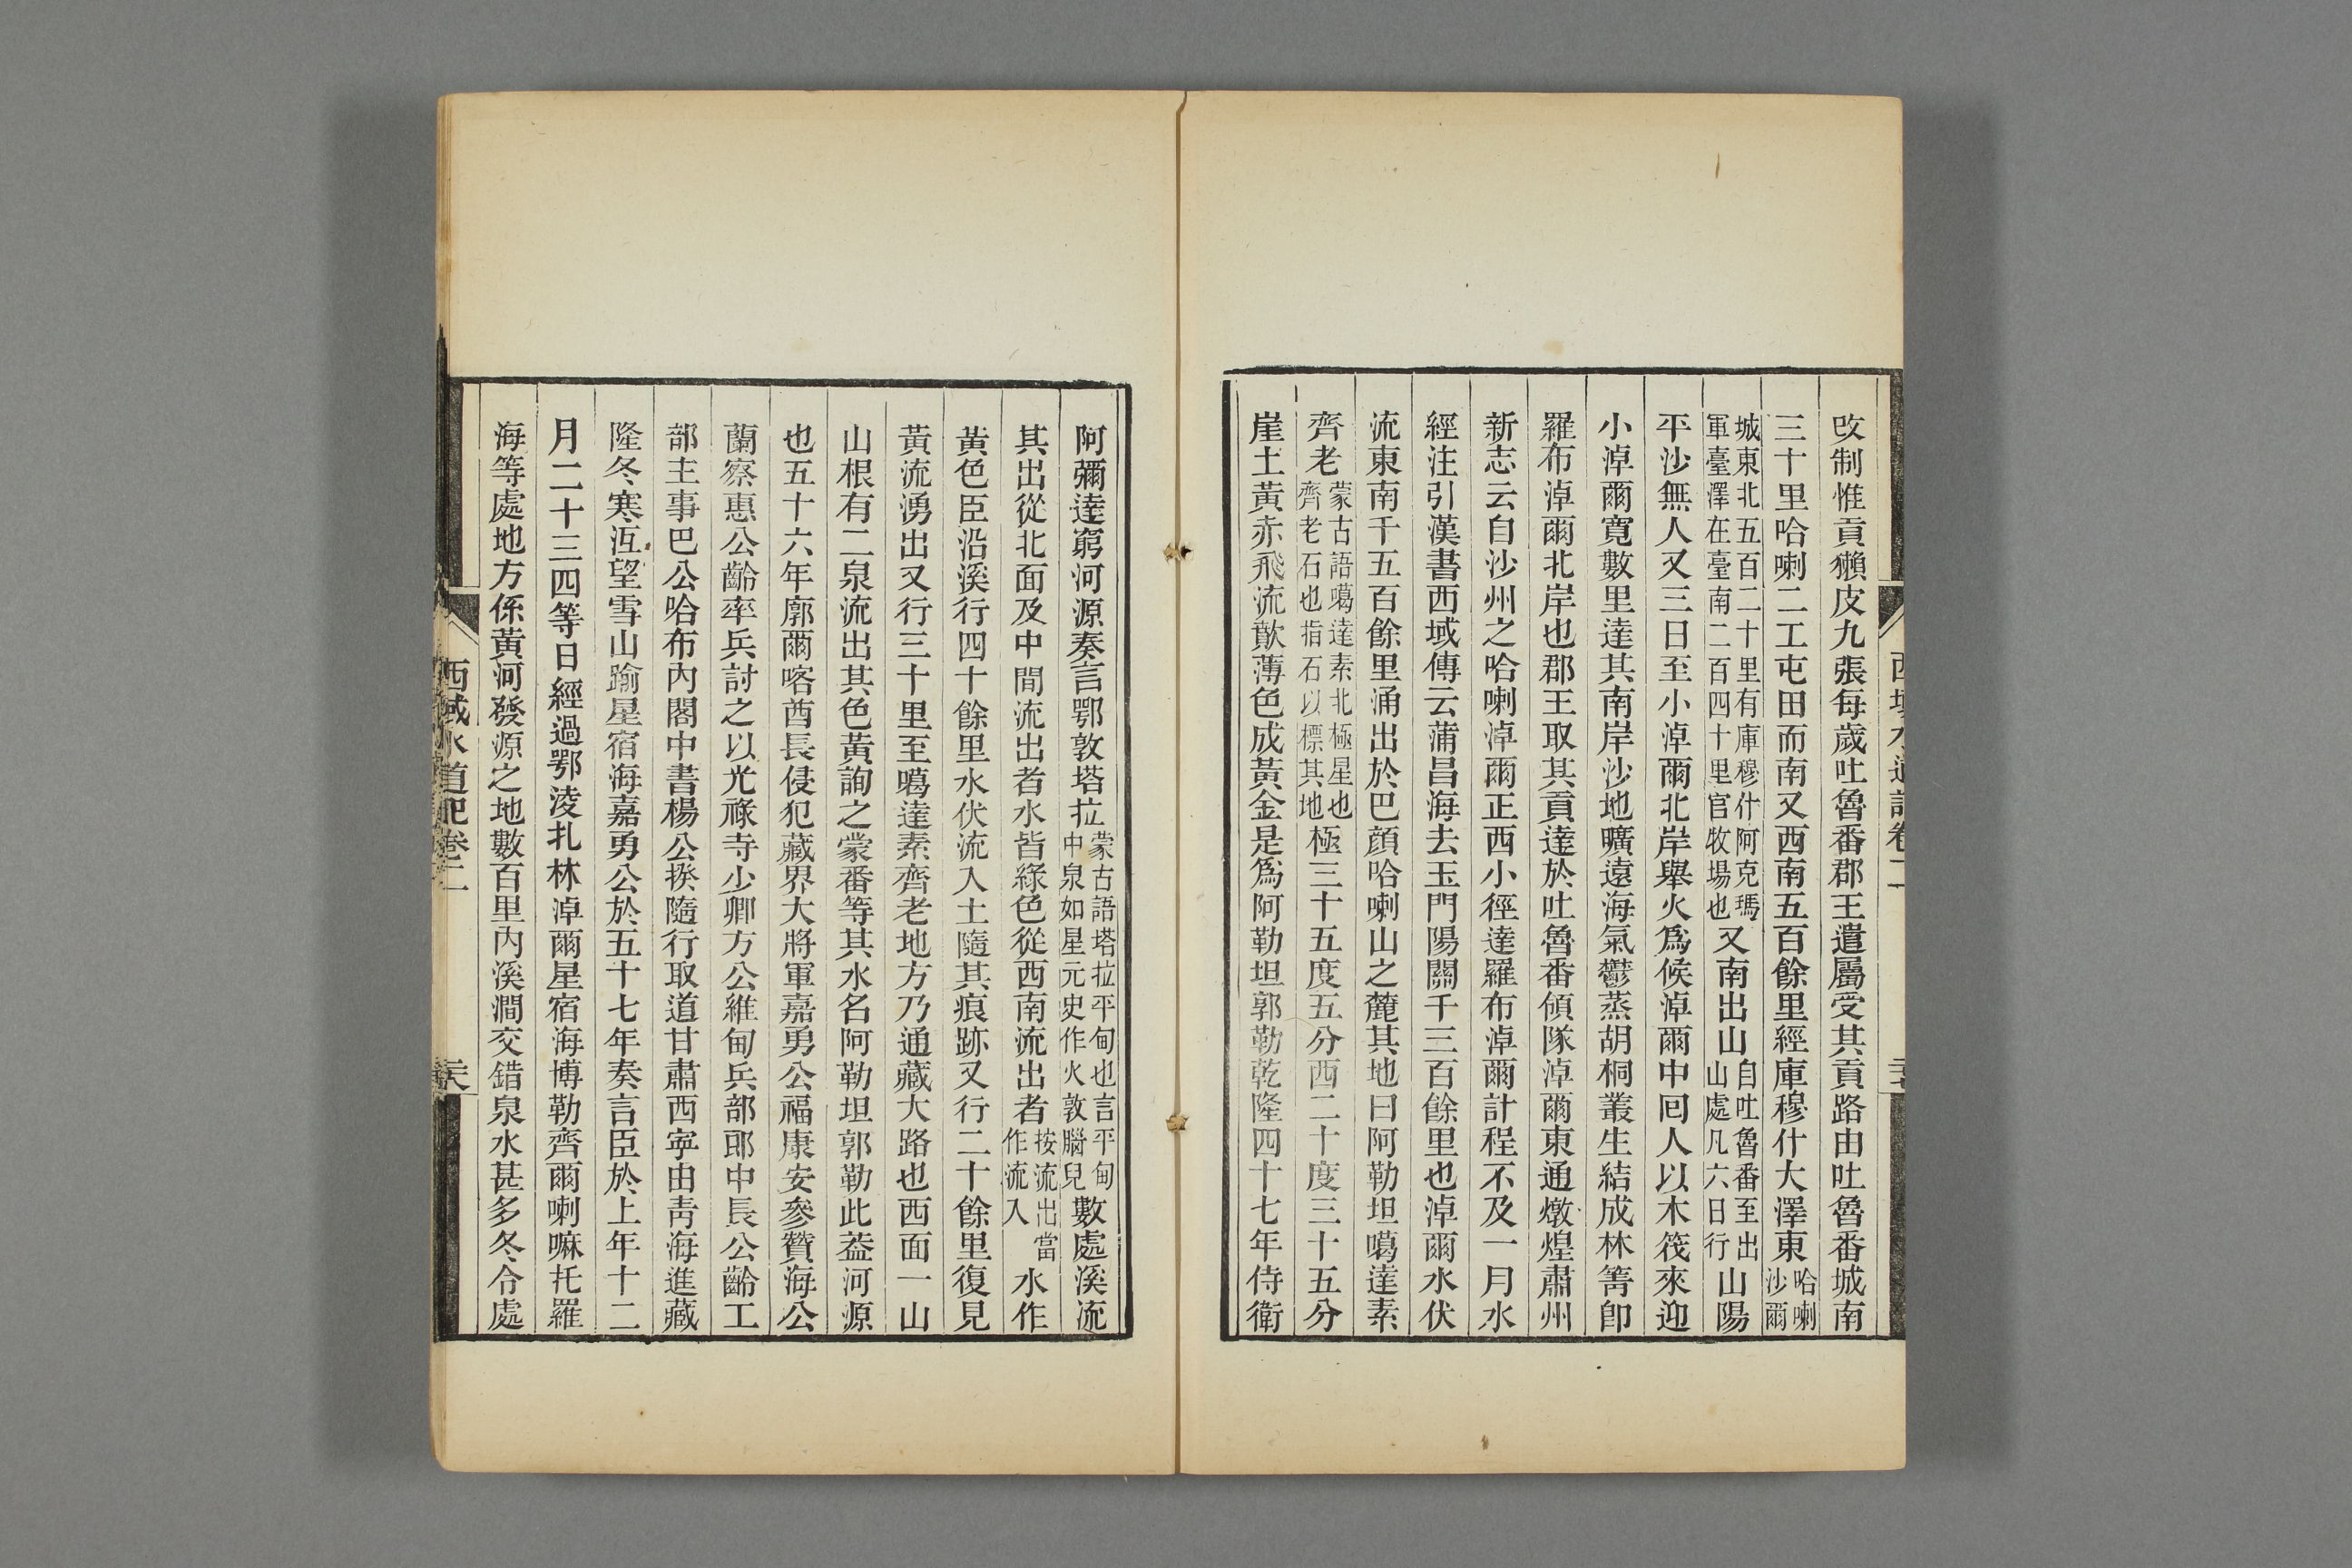 攺制惟貢獺皮九張每歲吐魯番郡王遣屬受其貢路由吐魯番城南
三十里哈喇二工屯田而南又西南五百餘里經庫穆什大澤東哈喇沙爾
城東北五百二十里有庫穆什阿克瑪軍臺澤在臺南二百四十里官牧場也又南出山自吐魯番至出山處凡六日行山陽
平沙無人又三日至小淖爾北岸舉火爲候淖爾中囘人以木筏來迎
小淖爾寬數里達其南岸沙地曠遠海氣鬱蒸胡桐叢生結成林箐卽
羅布淖爾北岸也郡王取其貢達於吐魯番傾隊淖爾東通燉煌肅州
新志云自沙州之哈喇淖爾正西小徑達羅布淖爾計程不及一月水
經注引漢書西域傳云蒲昌海去玉門陽關千三百餘里也淖爾水伏
流東南千五百餘里涌出於巴顔哈喇山之麓其地曰阿勒坦噶達素
齊老蒙古語噶達素北極星也齊老石也指石以標其地極三十五度五分西二十度三十五分
崖土黃赤飛流歕薄色成黃金是爲阿勒坦郭勒乾隆四十七年侍衛
西域水道記卷二
阿彌達窮河源奏言鄂敦塔拉蒙古語塔拉平甸也言平甸中泉如星元史作火敦腦兒數處溪流
其出從北面及中間流出者水皆綠色從西南流出者按流出當作流入水作
黃色臣沿溪行四十餘里水伏流入土隨其痕跡又行二十餘里復見
黃流湧出又行三十里至噶達素齊老地方乃通藏大路也西面一山
山根有二泉流出其色黃詢之蒙番等其水名阿勒坦郭勒此葢河源
也五十六年廓爾喀酋長侵犯藏界大將軍嘉勇公福康安參贊海公
蘭察惠公齡率兵討之以光祿寺少卿方公維甸兵部郎中長公齡工
部主事巴公哈布內閣中書楊公揆隨行取道甘肅西寜由靑海進藏
隆冬寒沍望雪山踰星宿海嘉勇公於五十七年奏言臣於上年十二
月二十三四等日經過鄂淩扎林淖爾星宿海博勒齊爾喇嘛托羅
海等處地方係黃河發源之地數百里內溪澗交錯泉水甚多冬令處
西域水道記卷二